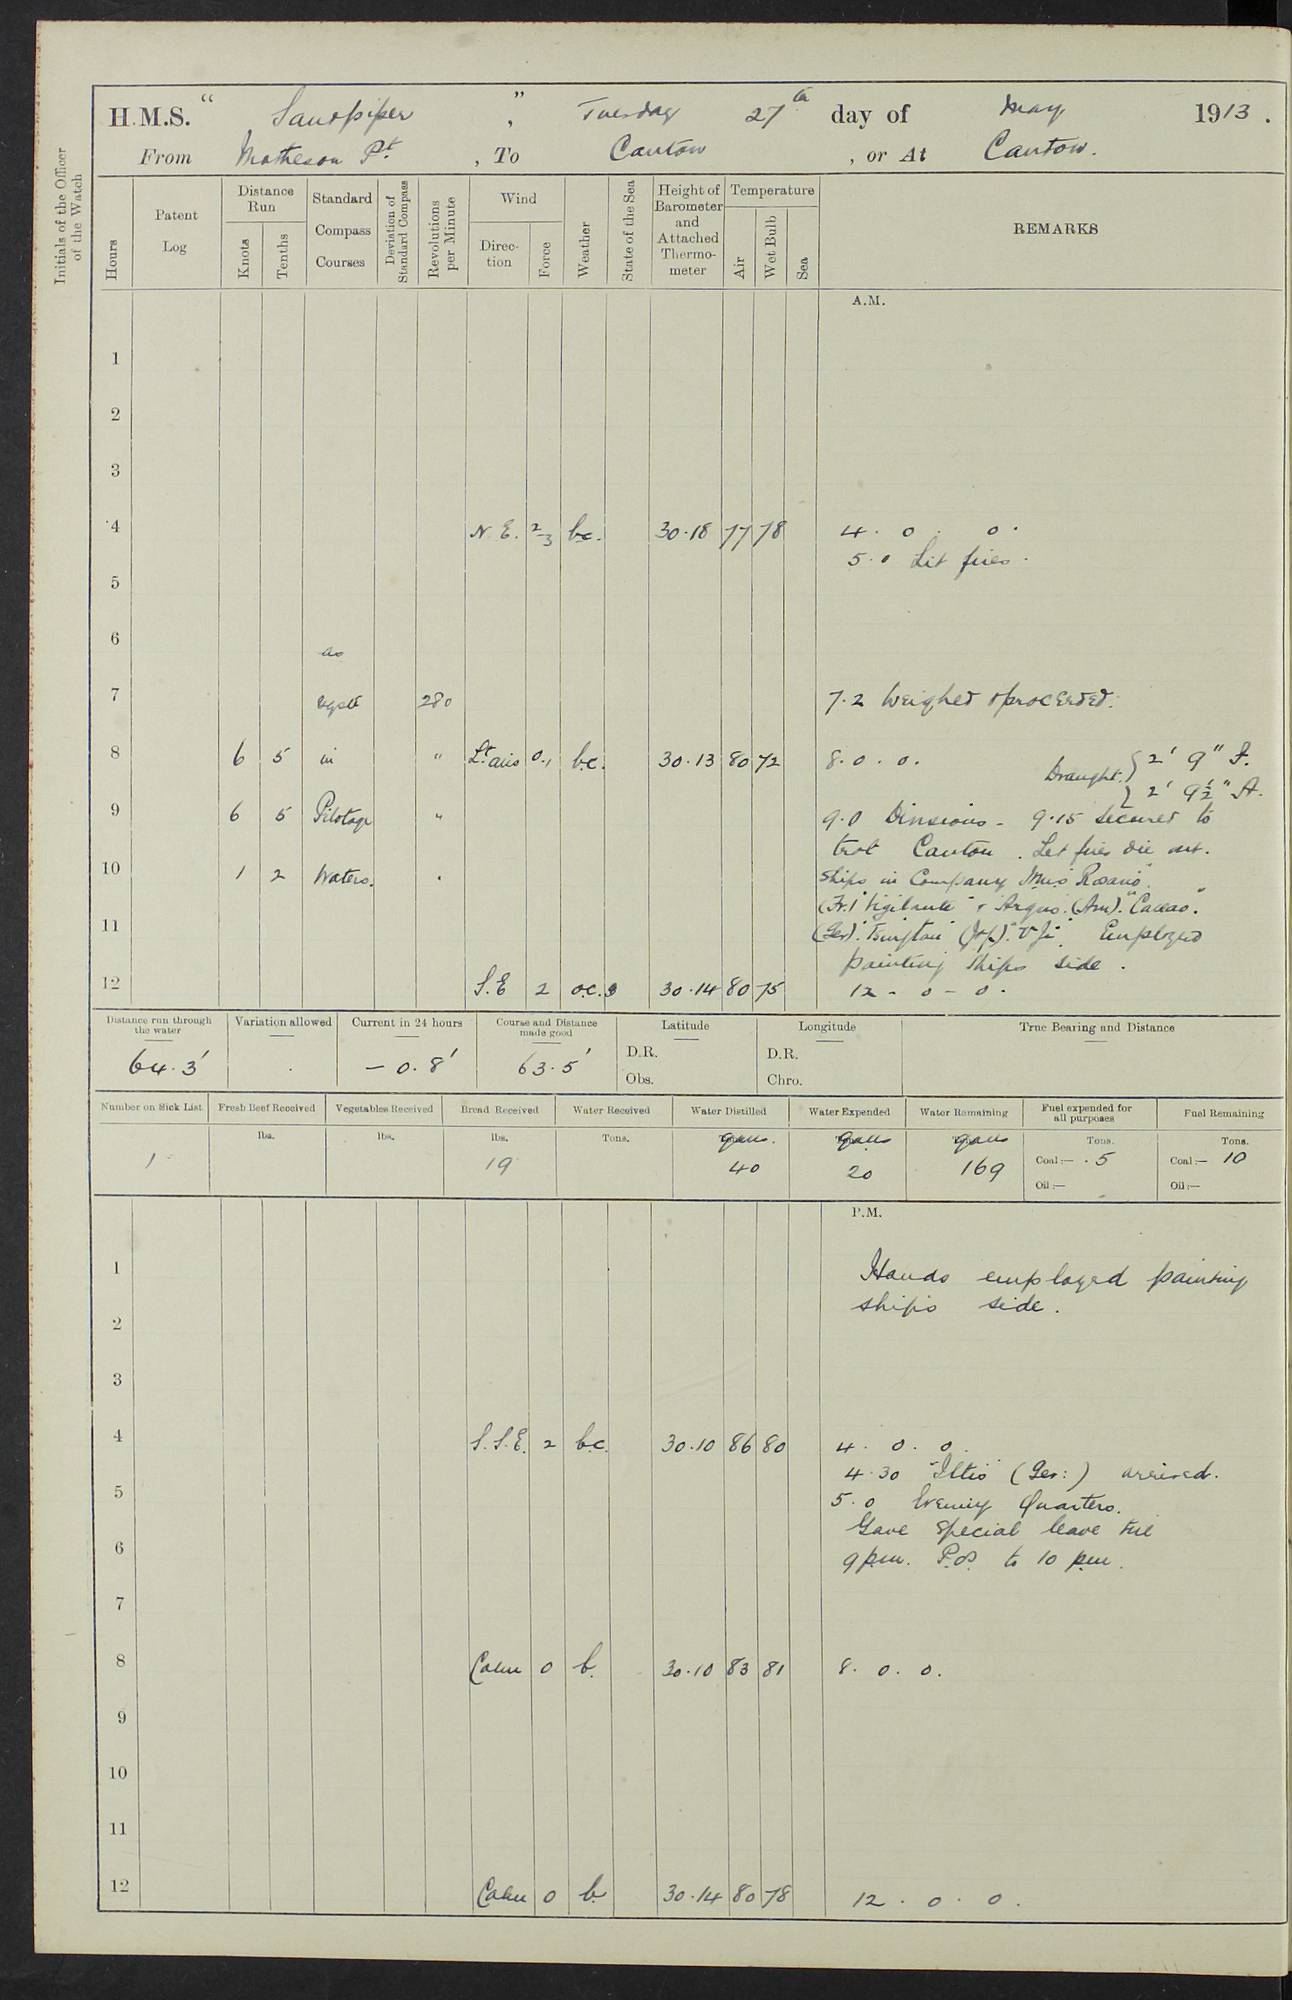 H.M.S. " Sandpiper ", Tuesday 27th day of May 1913.
From Matheson Pt., To Canton, or At Canton.
Initials of the Officer of the Watch
Hours
Patent Log
Distance Run
Knots
Tenths
Standard Compass Courses
Deviation of Standard Compass
Revolutions per Minute
Wind
Direction
Force
Weather
State of the Sea
Height of Barometer and Attached Thermometer
Temperature
Air
Wet Bulb
Sea
REMARKS
A.M.
1
2
3
4 N.E. 2-3 b.c. 30.18 77 78 4. 0. 0.
5.0 Lit fires.
5
6
as
7 reqd 280 7.2 Weighed & proceeded.
8 6 5 in " Lt. airs 0.1 b.c. 30.13 80 72 8. 0. 0. Draught. { 2' 9" F.
2' 9½" A.
9 6 5 Pilotage " 9.0 Divisions - 9.15 Secured to
trot Canton. Let fires die out.
10 1 2 Waters. " Ships in Company HMS "Rosario"
(Fr.) "Vigilante" & "Argus". (Am). "Callao".
11 (Ger). "Tsingtau" (Jap). "Uji". Employed
painting Ships side.
12 S.E 2 o.c. 30.14 80 75 12 - 0 - 0.
Distance run through the water
Variation allowed
Current in 24 hours
Course and Distance made good
Latitude
Longitude
True Bearing and Distance
64.3' - 0.8' 63.5' D.R. D.R.
Obs. Chro.
Number on Sick List
Fresh Beef Received
Vegetables Received
Bread Received
Water Received
Water Distilled
Water Expended
Water Remaining
Fuel expended for all purposes
Fuel Remaining
lbs. lbs. lbs. Tons. galls. galls galls Tons. Tons.
1 19 40 20 169 Coal:— .5 Coal:— 10
Oil:— Oil:—
P.M.
1 Hands employed painting
ships side.
2
3
4 S.S.E. 2 b.c. 30.10 86 80 4. 0. 0.
4.30 "Iltis" (Ger:) arrived.
5 5.0 Evening Quarters.
Gave special leave till
6 9 p.m. P.Os. to 10 p.m.
7
8 Calm 0 b. 30.10 83 81 8. 0. 0.
9
10
11
12 Calm 0 b. 30.14 80 78 12. 0. 0.